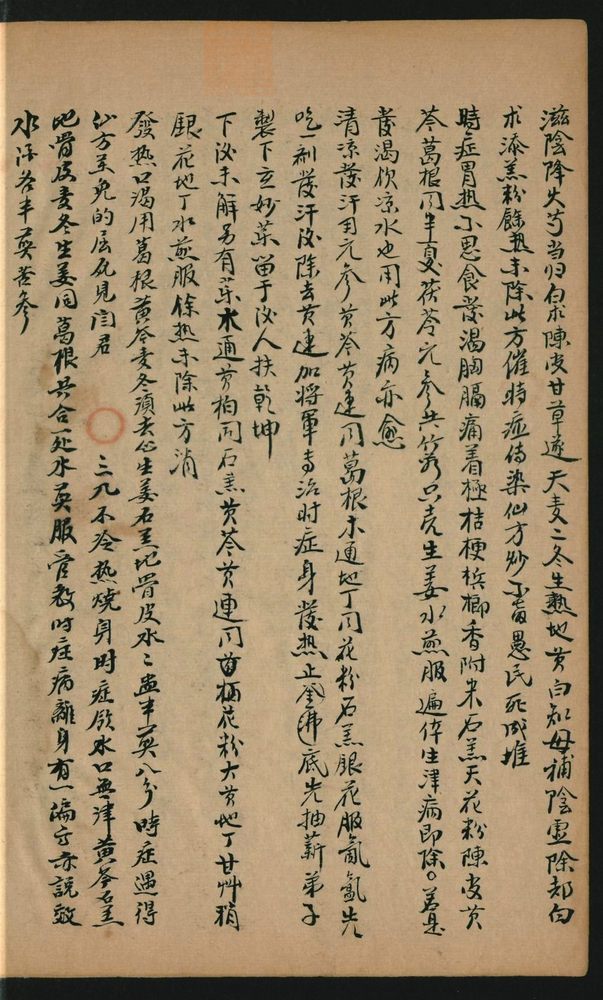 滋陰降火芍当归白术陳皮甘草遂天麦二冬生熟地黄白知母補陰虚除却白
术添羔粉餘熱未除此方催時症傳染仙方妙不留愚民死成堆
時症胃热不思食發渴胸膈痛着極桔梗梹榔香附米石羔天花粉陳皮黄
苓葛根同半夏茯苓元參共竹茹只壳生姜水煎服遍体生津病即除○若是
發渴飲凉水也用此方病亦愈
清凉發汗用元參黄苓黄連同葛根木通地丁同花粉石羔銀花服氤氲先
吃一剂發汗汝除去黄連加将軍專治时症身發热止釜沸底先抽薪弟子
製下立妙药留于汝人扶乾坤
下汝未解另有药木通黄柏同石羔黄苓黄連同花粉大黄地丁甘艸稍
銀花地丁水煎服餘热未除此方消
發热口渴用葛根黄苓麦冬須去心生姜石羔地骨皮水二盅半煎八分時症遇得
仙方至免的屈死見閆君 三九不冷熱燒身时症飲水口無津黄苓石羔
地骨皮麦冬生姜同葛根共合一处水煎服管教时症病離身有一偏方亦説效
水